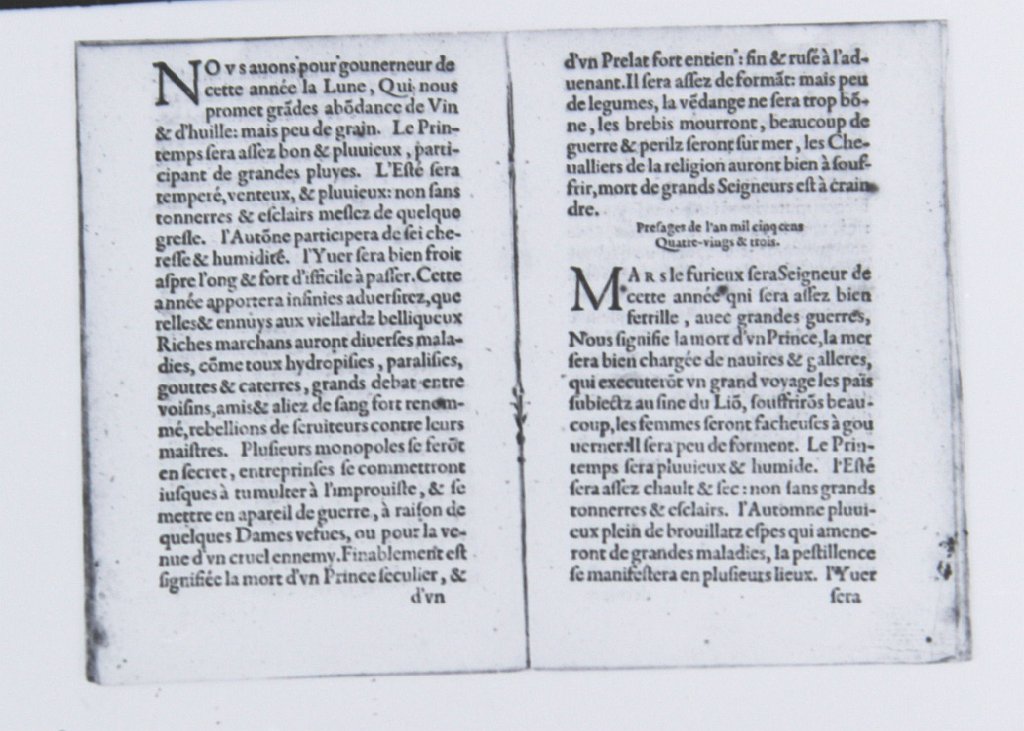 NOvs auons pour gouuerneur de
cette année la Lune, Qui nous
promet grãdes abõdance de Vin
& d'huille: mais peu de grain. Le Prin-
temps ſera aſſez bon & pluuieux, parti-
cipant de grandes pluyes. L'Eſté ſera
temperé, venteux, & pluuieux: non ſans
tonnerres & eſclairs meſlez de quelque
greſle. l'Autõne participera de ſei che-
reſſe & humidité. l'Yuer ſera bien froit
aſpre l'ong & fort d'ifficile à paſſer. Cette
année apportera infinies aduerſitez, que
relles & ennuys aux viellardz belliqueux
Riches marchans auront diuerſes mala-
dies, cõme toux hydropiſies, paraliſies,
gouttes & caterres, grands debat entre
voiſins, amis & aliez de ſang fort renom-
mé, rebellions de ſeruiteurs contre leurs
maiſtres. Pluſieurs monopoles ſe ferõt
en ſecret, entreprinſes ſe commettront
iuſques à tumulter à l'improuiſte, & ſe
mettre en apareil de guerre, à raiſon de
quelques Dames vefues, ou pour la ve-
nue d'vn cruel ennemy. Finablement eſt
ſignifiée la mort d'vn Prince ſeculier, &
d'vn
d'vn Prelat fort entien: fin & ruſé à l'ad-
uenant. Il ſera aſſez de formãt: mais peu
de legumes, la vẽdange ne ſera trop bõ-
ne, les brebis mourront, beaucoup de
guerre & perilz ſeront ſur mer, les Che-
ualliers de la religion auront bien à ſouf-
frir, mort de grands Seigneurs eſt à crain
dre.
Preſages de l'an mil cinq cens
Quatre-vings & trois.
MARs le furieux ſera Seigneur de
cette année qni ſera aſſez bien
fertille, auec grandes guerres,
Nous ſignifie la mort d'vn Prince, la mer
ſera bien chargée de nauires & galleres,
qui executerõt vn grand voyage les païs
ſubiectz au ſine du Liõ, ſouffrirõs beau-
coup, les femmes ſeront facheuſes à gou
uerner. Il ſera peu de forment. Le Prin-
temps ſera pluuieux & humide. l'Eſté
ſera aſſez chault & ſec: non ſans grands
tonnerres & eſclairs. l'Automne pluui-
eux plein de brouillatz eſpes qui amene-
ront de grandes maladies, la peſtillence
ſe manifeſtera en pluſieurs lieux. l'Yuer
ſera